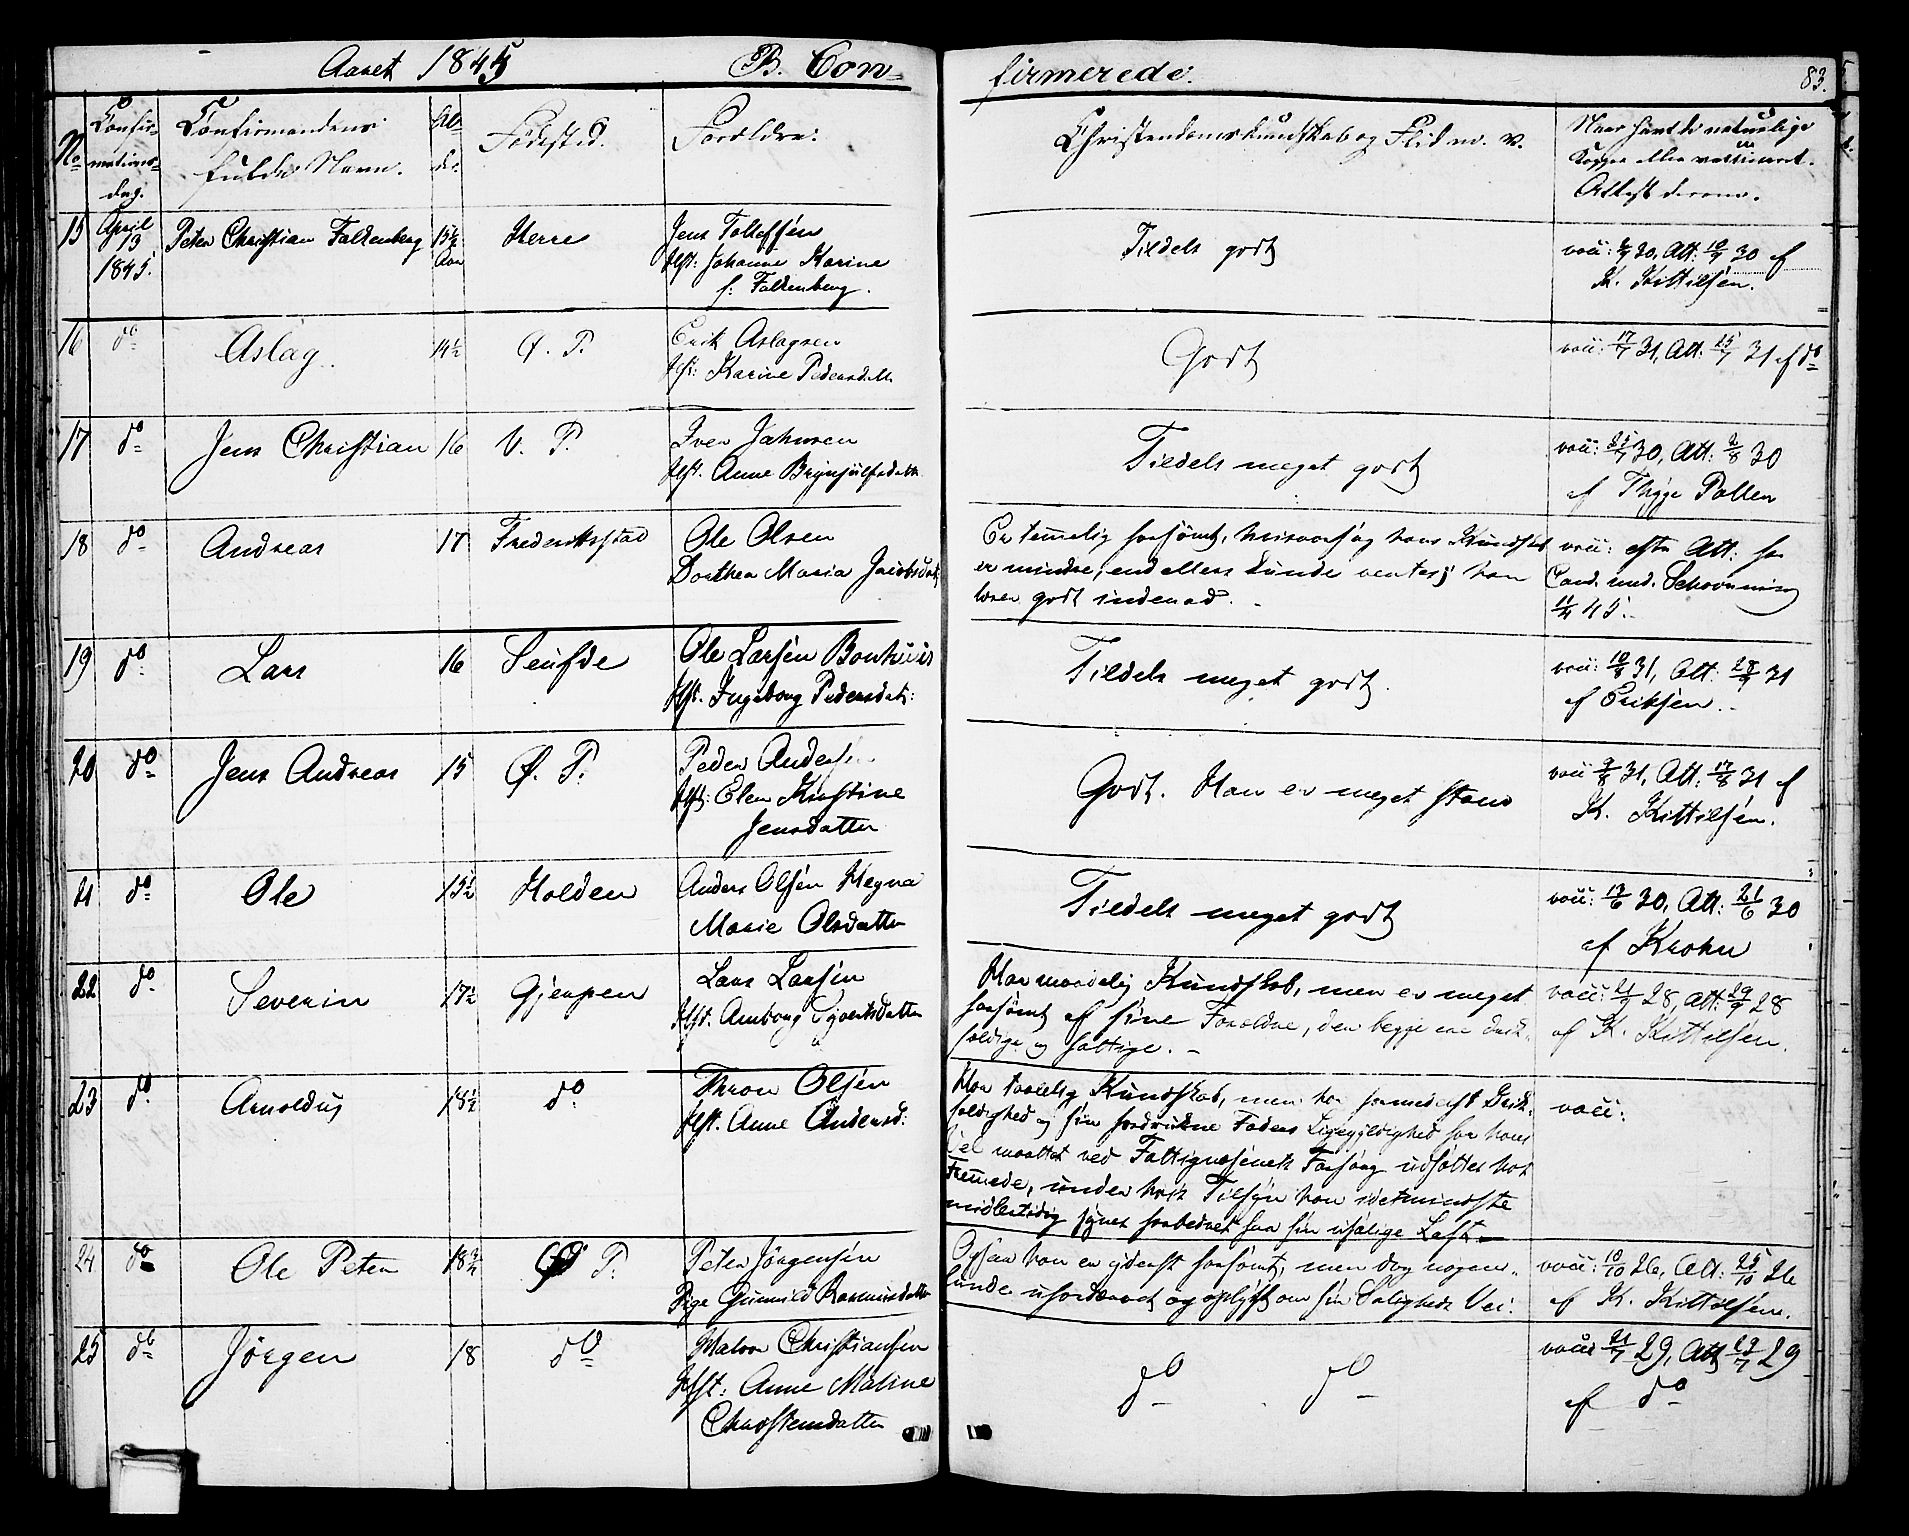 Aaret 1845 B. Con-
firmerede.
83.
No
Confir-
mations-
dag.
Confirmandens
fulde Navn.
Al-
der.
Fødested.
Forældre.
Christendomskundskab og Flid m. v.
Naar havt de naturlige
Kopper eller vaccineret.
Attest derom.
15 April 13 1845. Peter Christian Falkenberg 15½ Aar Herre
Jens Tollefsen
Hst: Johanne Karine
f: Falkenberg.
Tildels godt
vacc: 30, Att: 30 af
K. Kittilsen.
16 do Aslag 14½ Ø. P.
Erik Aslagsen
Hst: Karine Pedersdatt.
Godt
vacc: 17/7 31, Att: 25/7 31 af do
17 do Jens Christian 16 V. P.
Iver Jahnsen
Hst. Anne Brynjulfsdatt
Tildels meget godt
vacc: 25/7 30, Att: 2/8 30
af Thyge Pallen
18 do Andreas 17 Frederikstad
Ole Olsen
Dorthea Maria Jacobsdat
Er temmelig forsømt, hvisaarsag hans Kundskab
er mindre, end ellers kunde ventes; han
læser godt indenad.
vacc: efter Att: fra
Cand. med. Schovning
11/4 45.
19 do Lars 16 Seufde
Ole Larsen Bonhuus
Hst. Ingeborg Pedersdatt:
Tildels meget godt.
vacc: 31, Att: 31
af Eriksen.
20 do Jens Andreas 15 Ø. P.
Peder Andersen
Hst: Elen Kirstine
Jensdatter
Godt. Han er meget
vacc: 9/8 31, Att: 17/8 31 af
K. Kittilsen.
21 do Ole 15½ Holden
Anders Olsen Hegna
Marie Olsdatter
Tildels meget godt
vacc: 13/6 30, Att: 21/6 30
af Krohn
22 do Severin 17½ Gjerpen
Lars Larsen
Hst. Amborg Syvertsdatter
Har maadelig Kundskab, men er meget
forsømt af sine Forældre, der begge ere drik-
fældige og fattige.
vacc: 21/9 28, Att: 29/9 28
af K. Kittilsen.
23 do Arnoldus 18½ do
Thron Olsen
Hst. Anne Andersd:
Har taalelig Kundskab, men har formedelst Drik-
fældighed og sin fordrukne Faders Ligegyldighed for hans
Vel maattet ved Fattigvæsenets Forsorg udsættes hos
Fremmede, under hvis Tilsyn han idetmindste
midlertidig synes forbedret fra sin usalige Last.
vacc:
24 do Ole Peter 18¾ Ø P.
Peter Jørgensen
Pige Gunnild Rasmusdatter
Ogsaa han er yderst forsømt, men dog nogen-
lunde ufordærvet og oplyst om sin Saligheds Vei.
vacc: 10/10 26, Att: 25/10 26
af K. Kittilsen.
25 do Jørgen 18 do
Halvor Christiansen
Hst: Anne Maline
Christensdatter
do do
vacc: 21/7 29, Att 29/7 29
af do